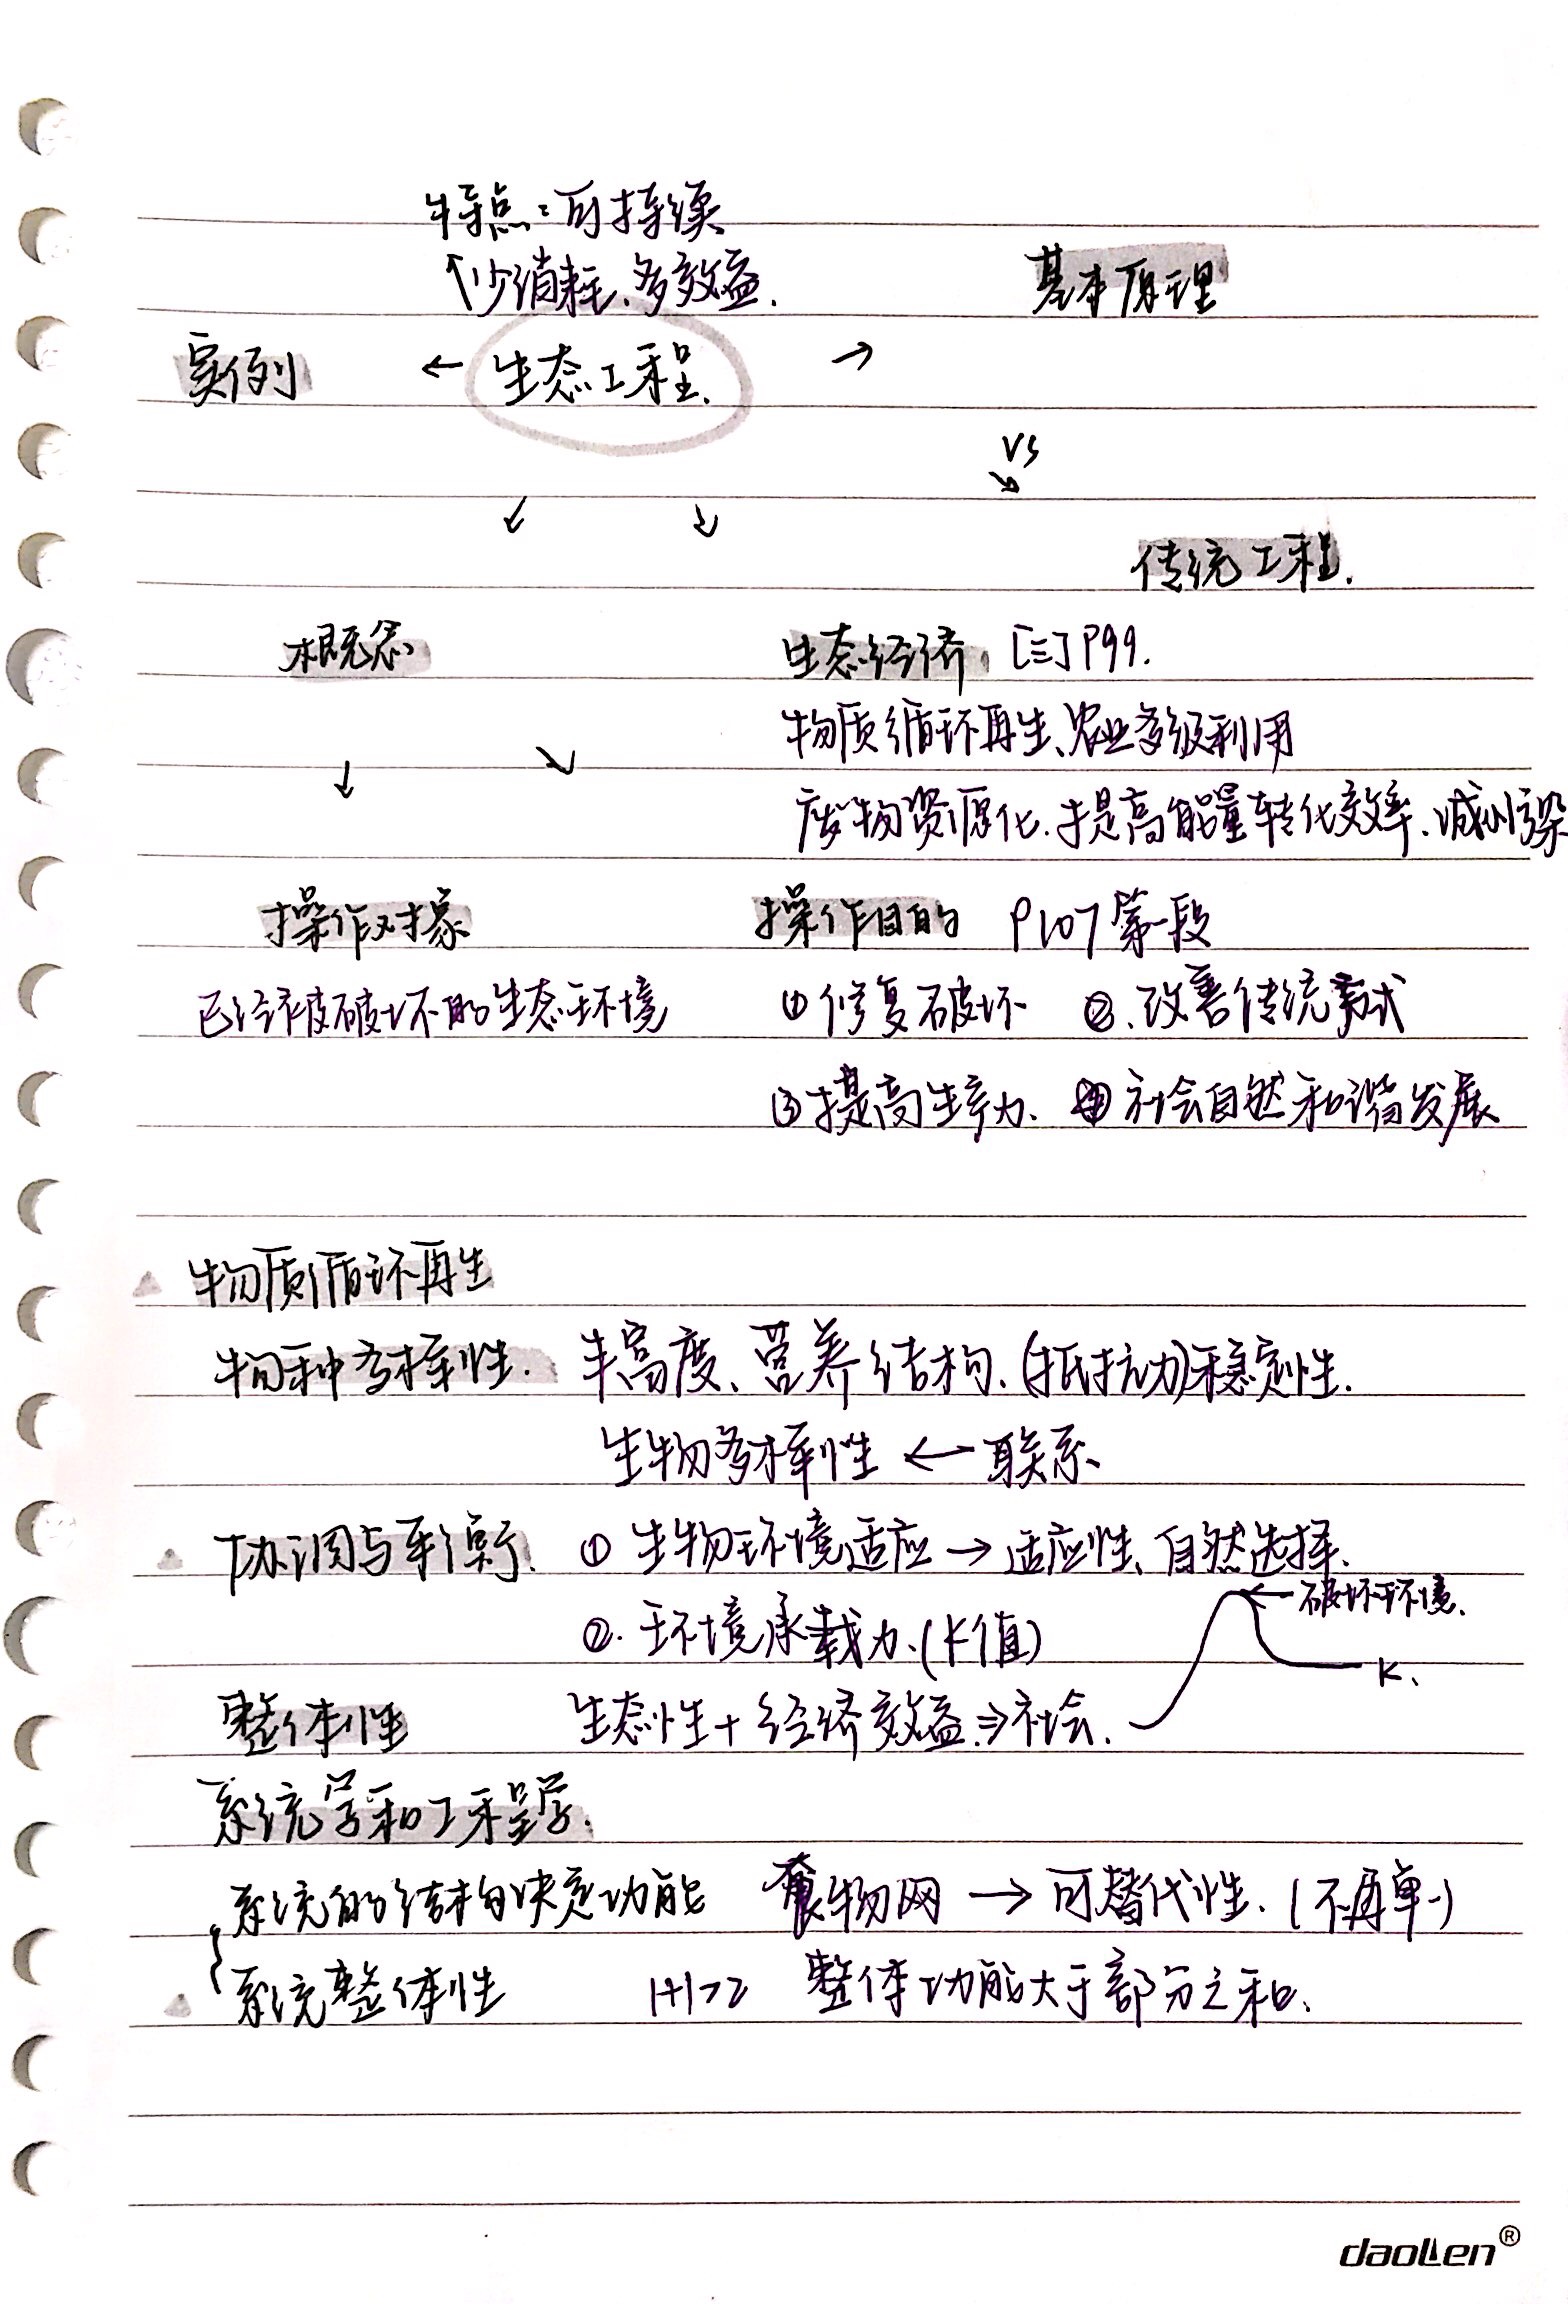 特点：可持续
↑少消耗、多效益.
基本原理
实例 ← 生态工程. →
vs
传统工程.
概念 生态经济 [三] P99.
物质循环再生、农业多级利用
废物资源化、提高能量转化效率、减小污染
操作对象 操作目的 P107 第一段
已经被破坏的生态环境 ①修复破坏 ②、改善传统模式
③提高生产力、④社会自然和谐发展
物质循环再生
物种多样性. 丰富度、营养结构、(抵抗力)稳定性.
生物多样性 ← 联系
协调与平衡. ① 生物环境适应 → 适应性、自然选择.
← 破坏环境.
②. 环境承载力.(K值)
K.
整体性 生态性 + 经济效益 ⇒ 社会.
系统学和工程学.
系统的结构决定功能 食物网 → 可替代性. (不再单一)
系统整体性 1+1>2 整体功能大于部分之和.
daoLen®